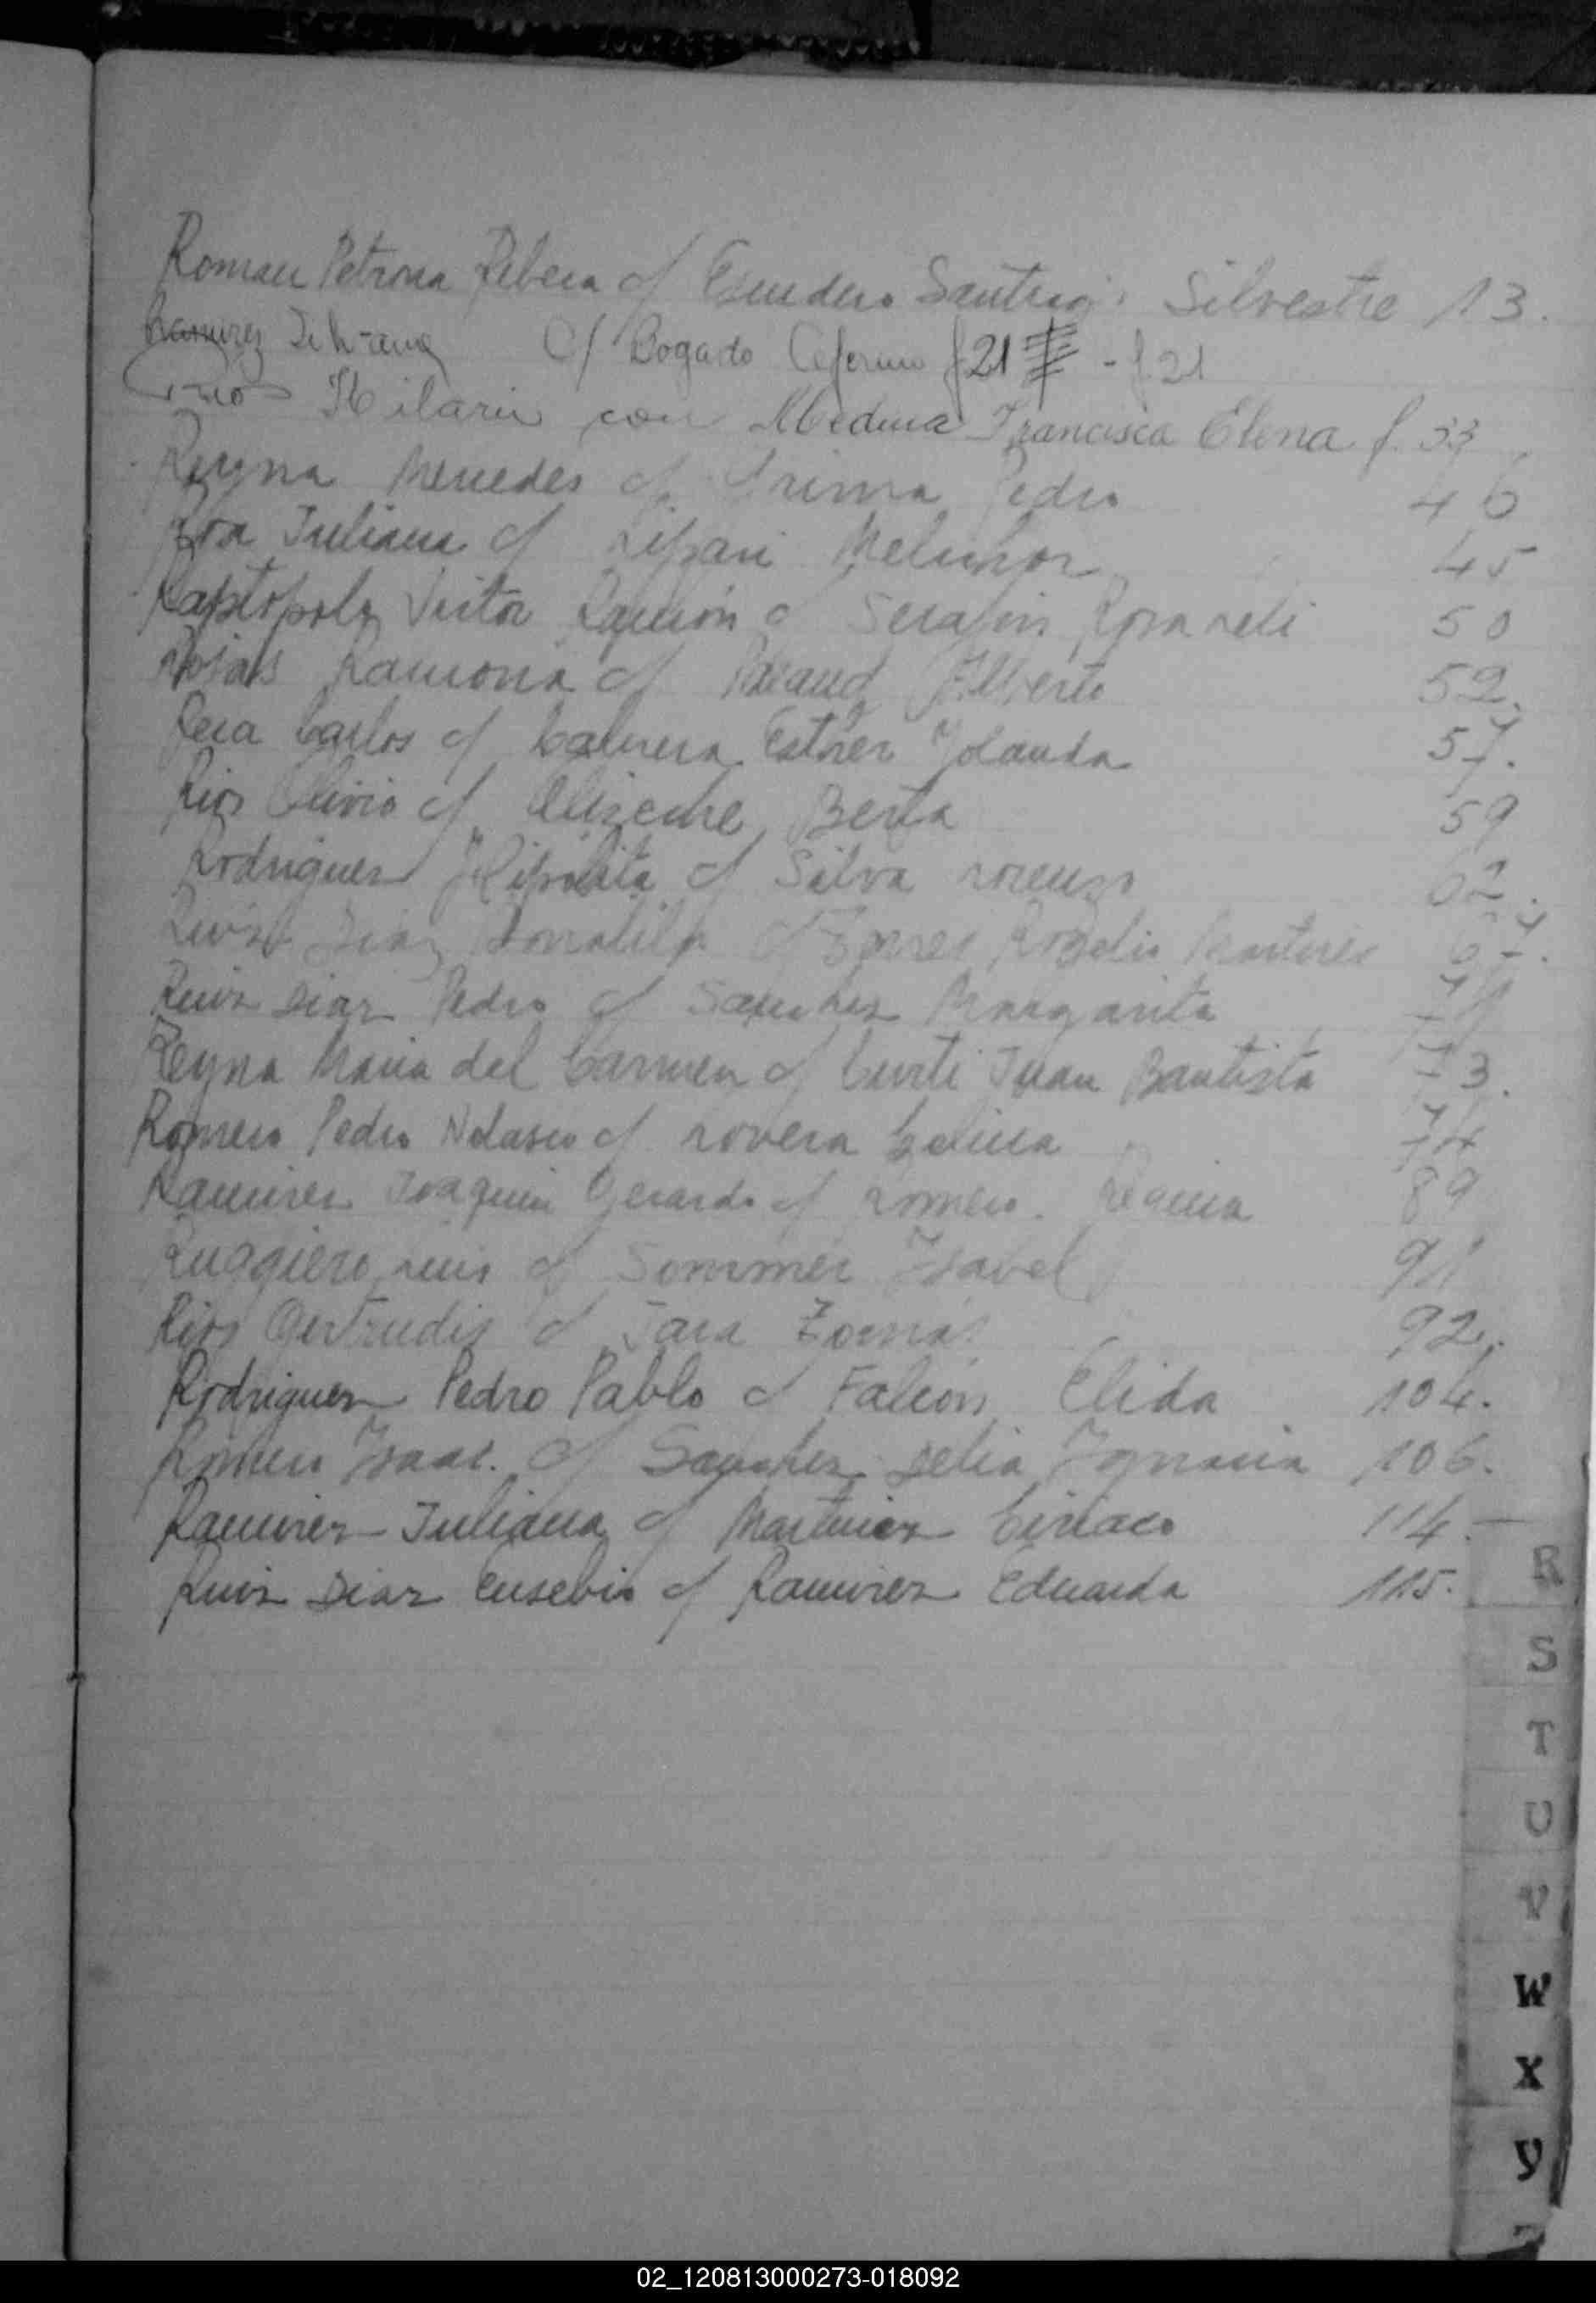 Roman Petrona Rebeca c/ Escudero Santiago Silvestre 13.
Ramirez c/ Bogado Ceferino f 21 - f 21
Rios Hilario con Medina Francisca Elena f. 53
Reyna Mercedes c/ Prima Pedro 46
Roa Juliana c/ Lipari Melchor 45
Victor Ramón c/ Serafin Rosa Neli 50
Rojas Ramona c/ Alberto 52.
Rera Carlos c/ Cabrera Esther Yolanda 57.
Rios Olivio c/ Berta 59
Rodriguez Hipolita c/ Silva Lorenzo 62.
Ruiz Diaz Domitila c/ Torres Rogelio 67.
Ruiz Diaz Pedro c/ Sanchez Margarita 71
Reyna Maria del Carmen c/ Curti Juan Bautista 73.
Romero Pedro Nolasco c/ Lovera Celina 74
Ramirez Joaquin Gerardo c/ Romero. Regina 89
Ruggiero Luis c/ Sommer Isabel 91
Rios Gertrudis c/ Jara Tomás 92.
Rodriguez Pedro Pablo c/ Falcón Elida 104.
Romero Isaac. c/ Sanchez Delia Ignacia 106.
Ramirez Juliana c/ Martinez Ciriaco 114.
Ruiz Diaz Eusebio c/ Ramirez Eduarda 115.
R
S
T
U
V
W
X
y
02_120813000273-018092